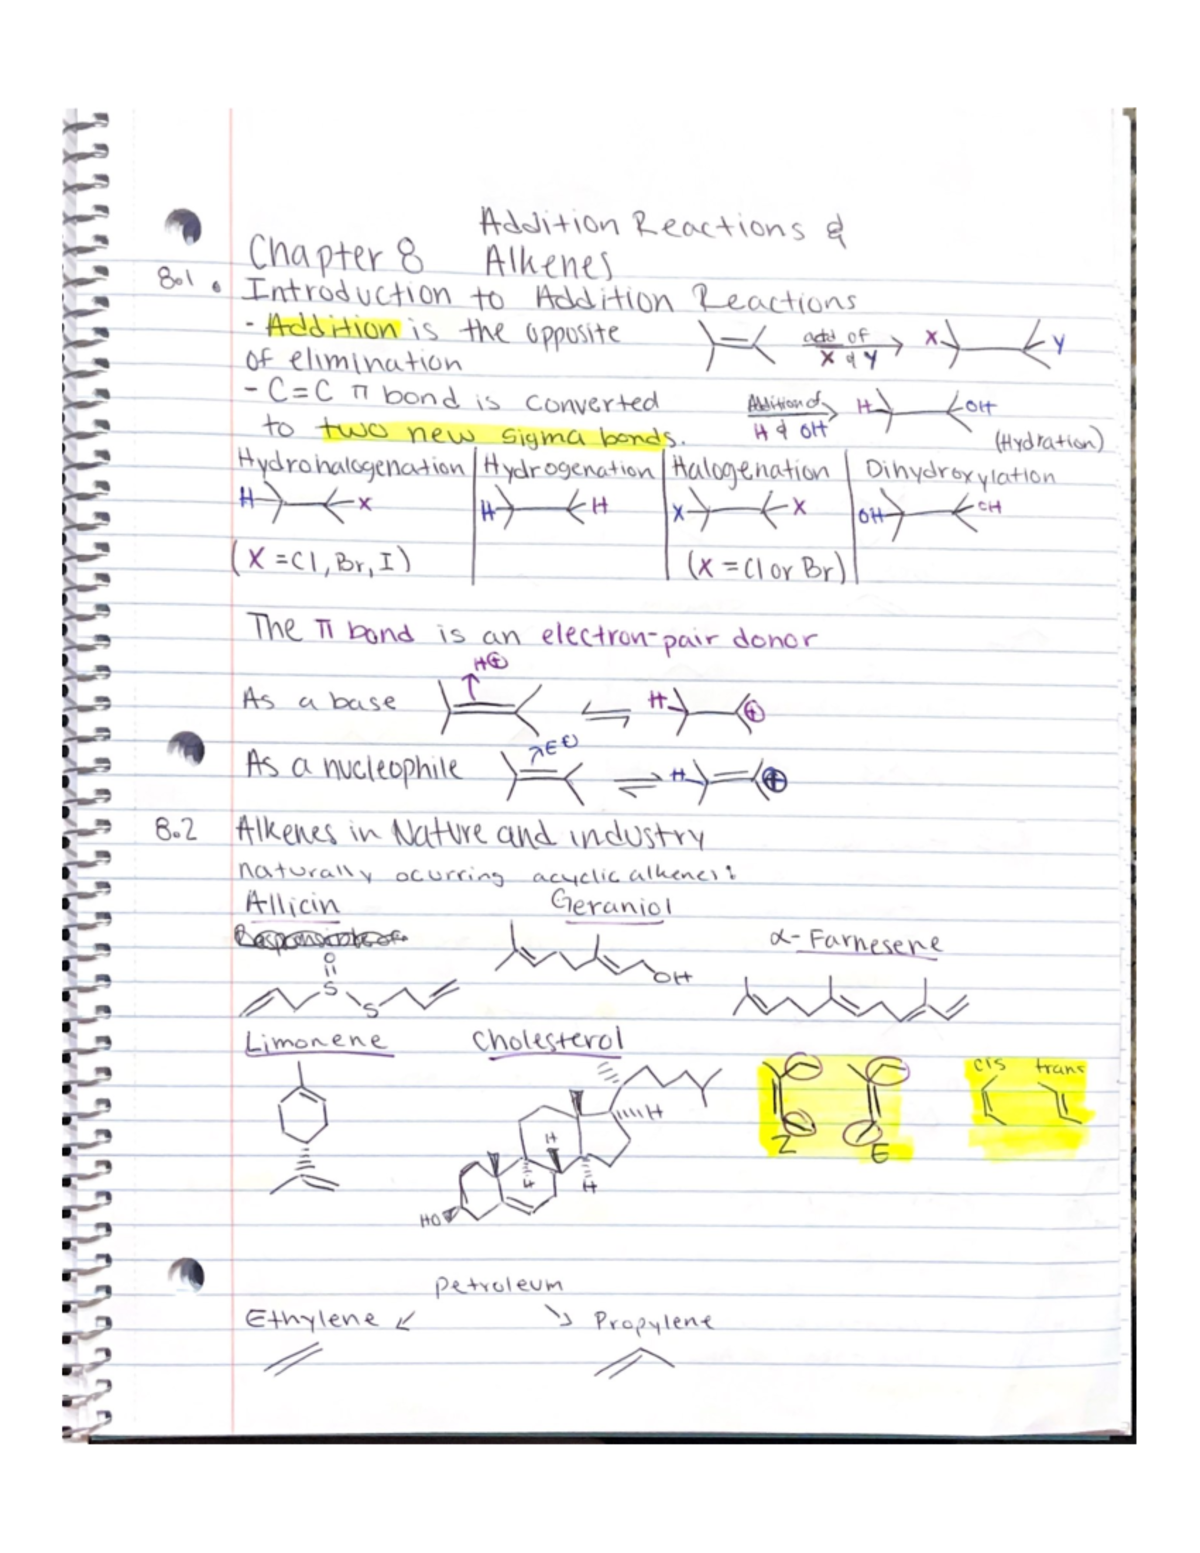 Addition Reactions &
Chapter 8 Alkenes
8.1 • Introduction to Addition Reactions
- Addition is the opposite
of elimination
add of
X & Y
X
Y
- C=C π bond is converted
to two new sigma bonds.
Addition of
H & OH
H
OH
(Hydration)
Hydrohalogenation | Hydrogenation | Halogenation | Dihydroxylation
H X H H X X OH OH
(X = Cl, Br, I) (X = Cl or Br)
The π bond is an electron-pair donor
H⊕
As a base H ⊕
E⊕
As a nucleophile H ⊕
8.2 Alkenes in Nature and industry
naturally ocurring acyclic alkenes:
Allicin Geraniol
α-Farnesene
O
S
S
OH
Limonene Cholesterol
cis trans
H
H
H
H
HO
Z E
petroleum
Ethylene ↙ ↘ Propylene